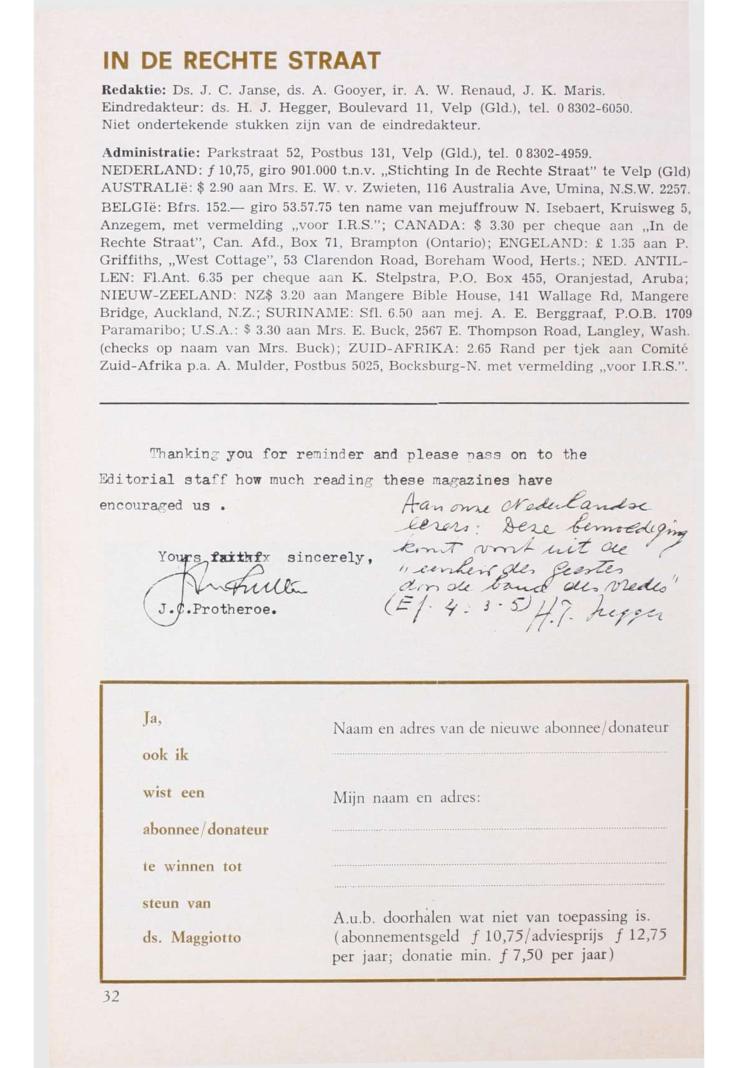 IN DE RECHTE STRAAT
Redaktie: Ds. J. C. Janse, ds. A. Gooyer, ir. A. W. Renaud, J. K. Maris.
Eindredakteur: ds. H. J. Hegger, Boulevard 11, Velp (Gld.), tel. 0 8302-6050.
Niet ondertekende stukken zijn van de eindredakteur.
Administratie: Parkstraat 52, Postbus 131, Velp (Gld.), tel. 0 8302-4959.
NEDERLAND: ƒ 10,75, giro 901.000 t.n.v. „Stichting In de Rechte Straat” te Velp (Gld)
AUSTRALIë: $ 2.90 aan Mrs. E. W. v. Zwieten, 116 Australia Ave, Umina, N.S.W. 2257.
BELGIë: Bfrs. 152.— giro 53.57.75 ten name van mejuffrouw N. Isebaert, Kruisweg 5,
Anzegem, met vermelding „voor I.R.S.”; CANADA: $ 3.30 per cheque aan „In de
Rechte Straat”, Can. Afd., Box 71, Brampton (Ontario); ENGELAND: £ 1.35 aan P.
Griffiths, „West Cottage”, 53 Clarendon Road, Boreham Wood, Herts.; NED. ANTIL-
LEN: Fl.Ant. 6.35 per cheque aan K. Stelpstra, P.O. Box 455, Oranjestad, Aruba;
NIEUW-ZEELAND: NZ$ 3.20 aan Mangere Bible House, 141 Wallage Rd, Mangere
Bridge, Auckland, N.Z.; SURINAME: Sfl. 6.50 aan mej. A. E. Berggraaf, P.O.B. 1709
Paramaribo; U.S.A.: $ 3.30 aan Mrs. E. Buck, 2567 E. Thompson Road, Langley, Wash.
(checks op naam van Mrs. Buck); ZUID-AFRIKA: 2.65 Rand per tjek aan Comité
Zuid-Afrika p.a. A. Mulder, Postbus 5025, Bocksburg-N. met vermelding „voor I.R.S.”.
Thanking you for reminder and please pass on to the
Editorial staff how much reading these magazines have
encouraged us .
Yours faithfx sincerely,
J.C.Protheroe.
Aan onze Nederlandse
lezers: Deze bemoediging
komt voort uit de
"eenheid des Geestes
door de band des vredes"
(Ef. 4: 3-5) H.J. Hegger
Ja,
ook ik
wist een
abonnee/donateur
te winnen tot
steun van
ds. Maggiotto
Naam en adres van de nieuwe abonnee/donateur
Mijn naam en adres:
A.u.b. doorhalen wat niet van toepassing is.
(abonnementsgeld ƒ 10,75/adviesprijs ƒ 12,75
per jaar; donatie min. ƒ 7,50 per jaar)
32